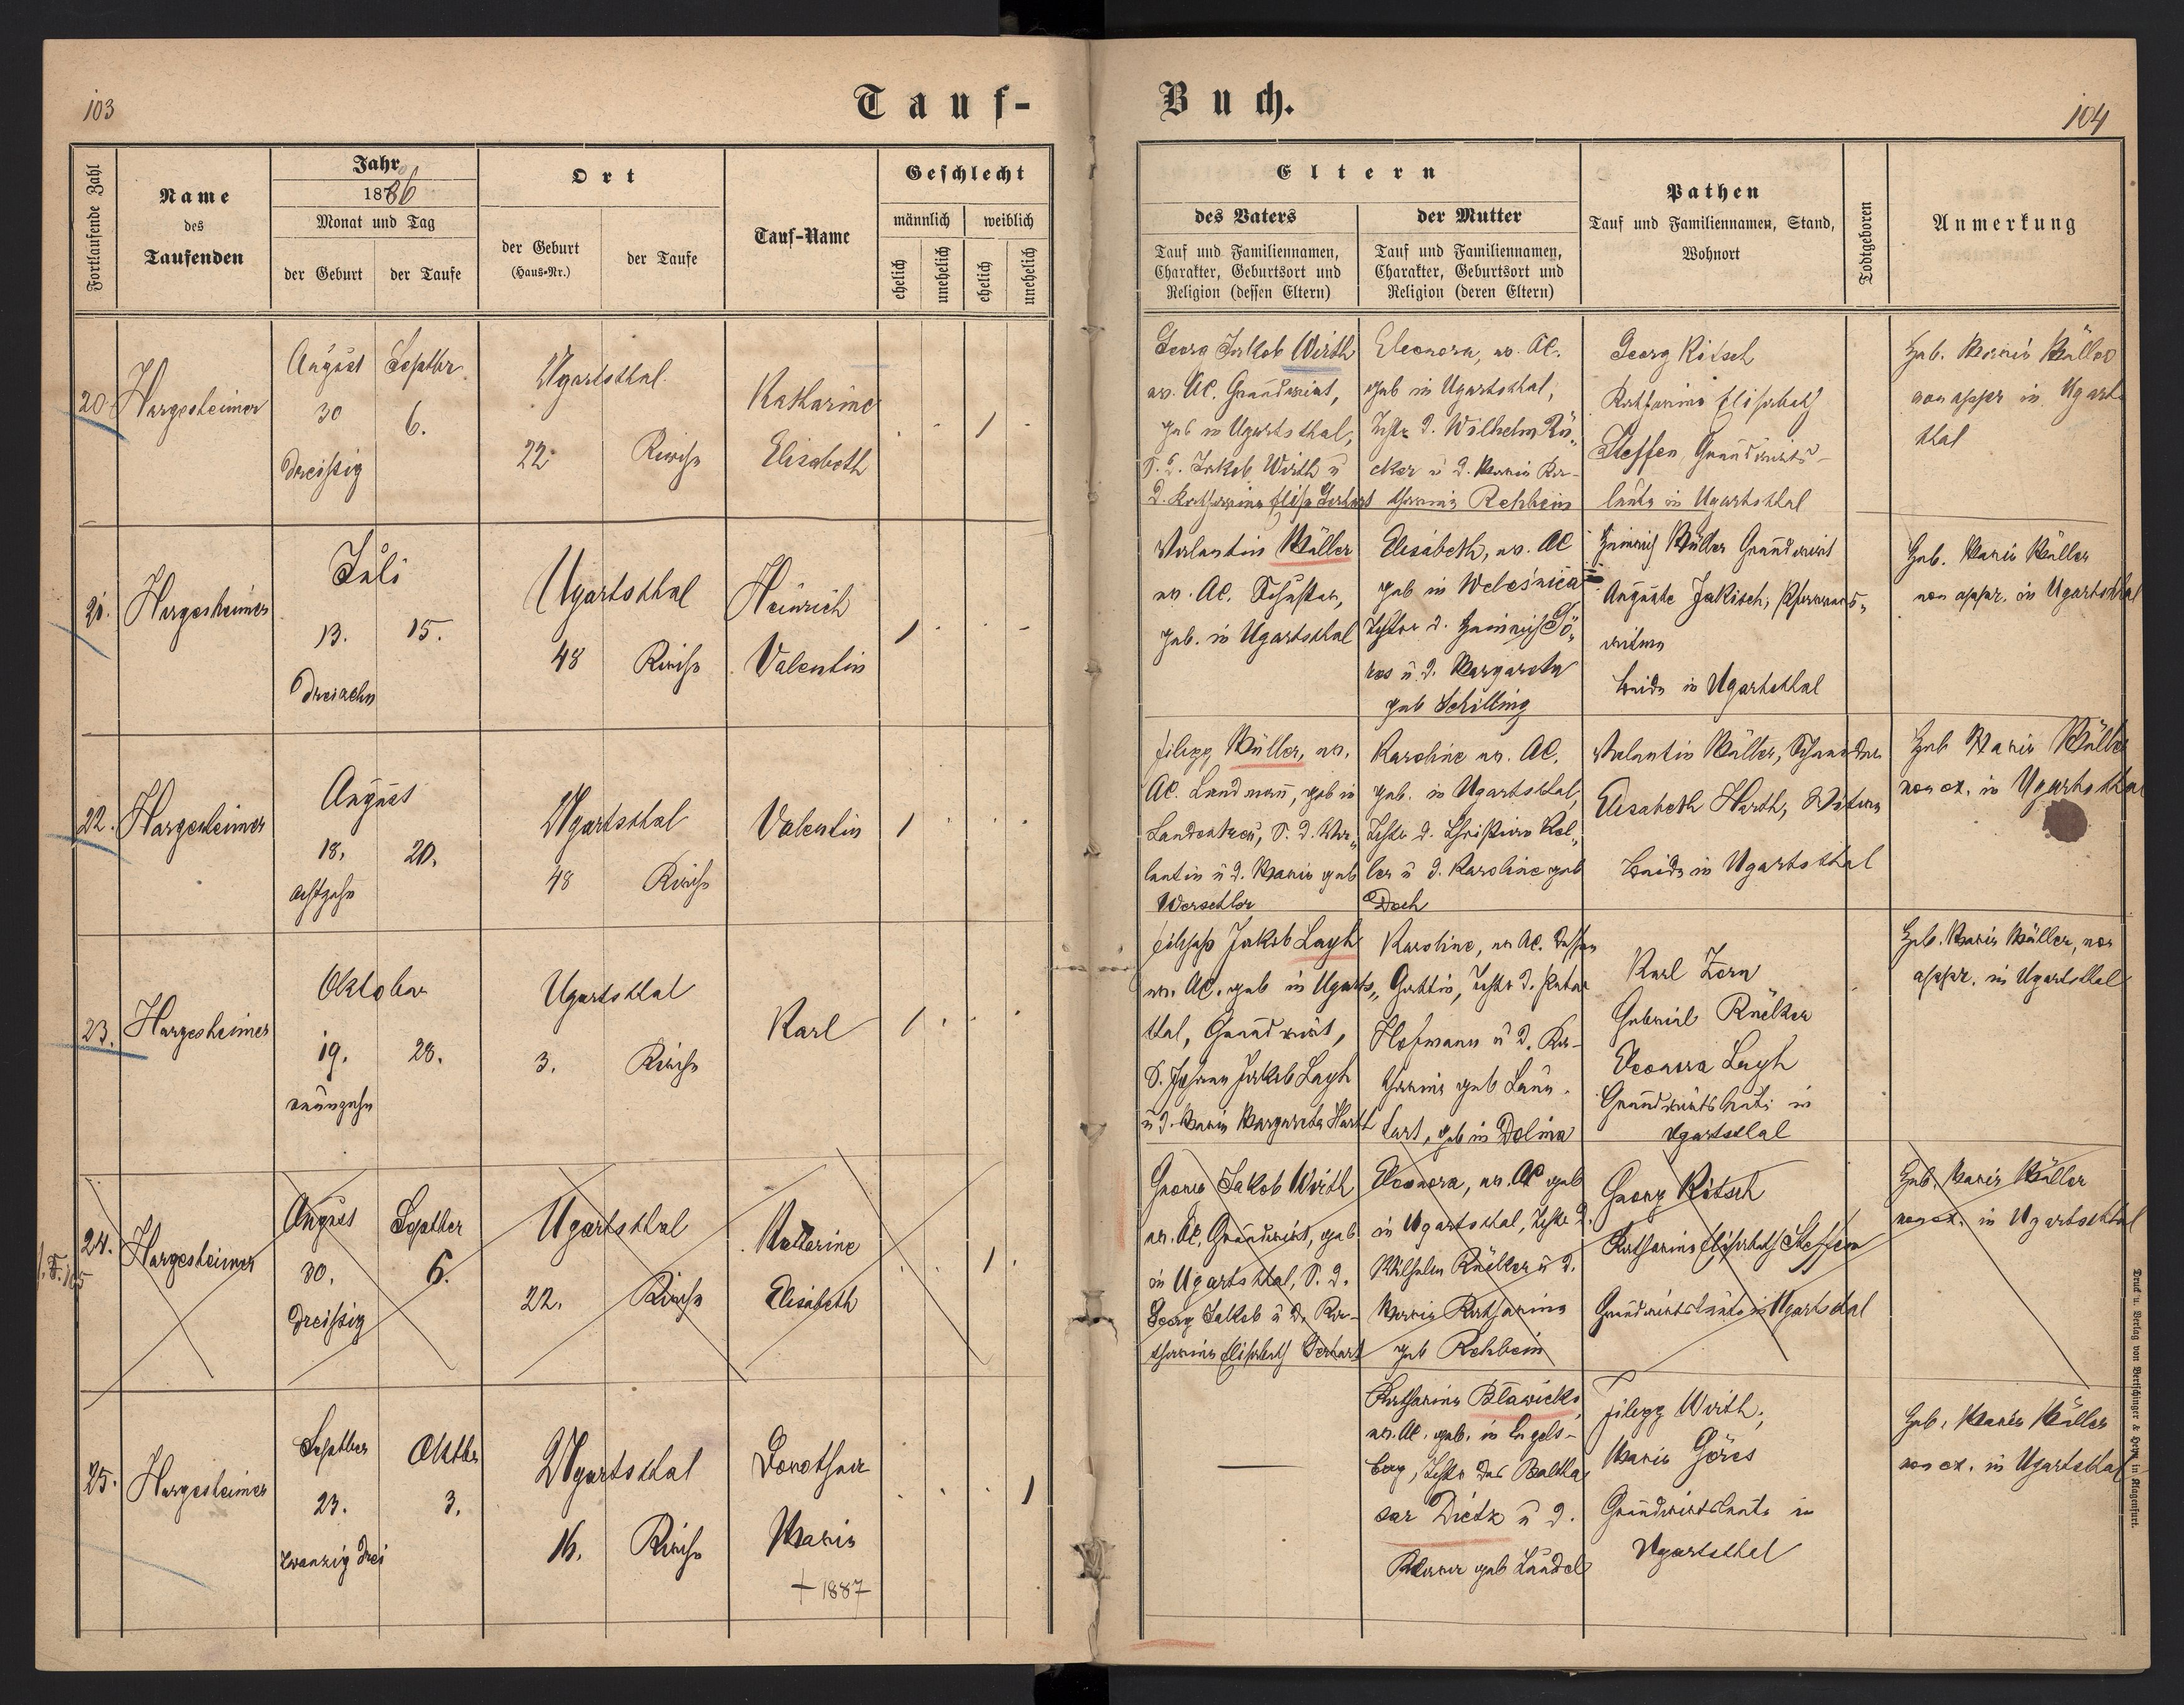 103
Tauf-
Buch.
104
Fortlaufende Zahl
Name
des
Taufenden
Jahr
1886
Monat und Tag
der Geburt
der Taufe
Ort
der Geburt
(Haus-Nr.)
der Taufe
Tauf-Name
Geschlecht
männlich
weiblich
ehelich
unehelich
ehelich
unehelich
Eltern
des Vaters
Tauf und Familiennamen,
Charakter, Geburtsort und
Religion (dessen Eltern)
der Mutter
Tauf und Familiennamen,
Charakter, Geburtsort und
Religion (deren Eltern)
Pathen
Tauf und Familiennamen, Stand,
Wohnort
Todtgeboren
Anmerkung
20.
Hargesheimer
August
30
dreissig
Septbr
6.
Ugartsthal
22
Kirche
Katharine
Elisabeth
Georg Jakob Wirth
ev. AC. Grundwirt,
geb in Ugartsthal,
S. d. Jakob Wirth u
d. Katharina Elise Gerhart
Eleonora, ev. AC.
geb in Ugartsthal,
Wilhelm Rü-
cker u d. Maria Ka-
tharina Rehbein
Georg Kötsch
Katharina Elisabeth
Steffen Grundwirts-
leute in Ugartsthal
Heb. Maria Müller
non appr in Ugarts
thal
21.
Hargesheimer
Juli
13.
15.
dreizehn
Ugartsthal
48
Kirche
Heinrich
Valentin
Valentin Müller
ev. AC. Schuster,
geb. in Ugartsthal
Elisabeth, ev. AC
geb in Weleśnica
Tochter d. Heinrich Gö-
res u. d. Margareta
geb Schilling
Heinrich Müller Grundwirt
Auguste Jakisch, Pfarrers-
witwe
beide in Ugartsthal
Heb. Maria Müller
non appr. in Ugartsthal
22.
Hargesheimer
August
18.
20.
achtzehn
Ugartsthal
48
Kirche
Valentin
Filipp Müller, ev.
AC. Landmann, geb in
Landestreu, S. d. Va-
lentin u d. Maria geb
Werschler
Karoline ev. AC.
geb. in Ugartsthal,
Kel-
ler u d. Karoline geb
Doch
Valentin Müller,
Elisabeth Harth, Witwe
beide in Ugartsthal
Heb Maria Müller
non ex. in Ugartsthal
23.
Hargesheimer
Oktober
19.
28.
neunzehn
Ugartsthal
3.
Kirche
Karl
Filipp Jakob Layh
ev. AC. geb in Ugarts-
thal, Grundwirt,
S. Johann Jakob Layh
u d. Maria Margareta Harth
Karoline, ev AC. dessen
Gattin, Peter
Hofmann u d. Ka-
tharina geb Laun-
hart, geb in Dolina
Karl Zorn
Gabriel Rücker
Eleonora Layh
Grundwirtsleute in
Ugartsthal
Heb. Maria Müller, non
appr. in Ugartsthal
24.
Hargesheimer
August
30.
dreissig
Septber
6.
Ugartsthal
22.
Kirche
Katharine
Elisabeth
Georg Jakob Wirth
ev. AC, Grundwirt, geb
in Ugartsthal, S. d.
Georg Jakob u d. Ka-
tharina Elisabeth Gerhart
Eleonora, ev. AC geb
in Ugartsthal,
Wilhelm Rücker u d.
Maria Katharina
geb Rehbein
Georg Kötsch
Katharina Elisabeth Steffen
Grundwirtsleute in Ugartsthal
Heb. Maria Müller
non ex. in Ugartsthal
25.
Hargesheimer
Septber
23.
zwanzig drei
Oktbr
3.
Ugartsthal
16.
Kirche
Dorothea
Maria
+ 1887
Katharina Bławicki,
ev. AC. geb. in Engels-
berg, Baltha
sar Dietz u d.
Filipp Wirth,
Maria Göres
Grundwirtsleute in
Ugartsthal
Heb. Maria Müller
non ex. in Ugartsthal
Druck u. Verlag von Bertschinger & Heyn in Klagenfurt.